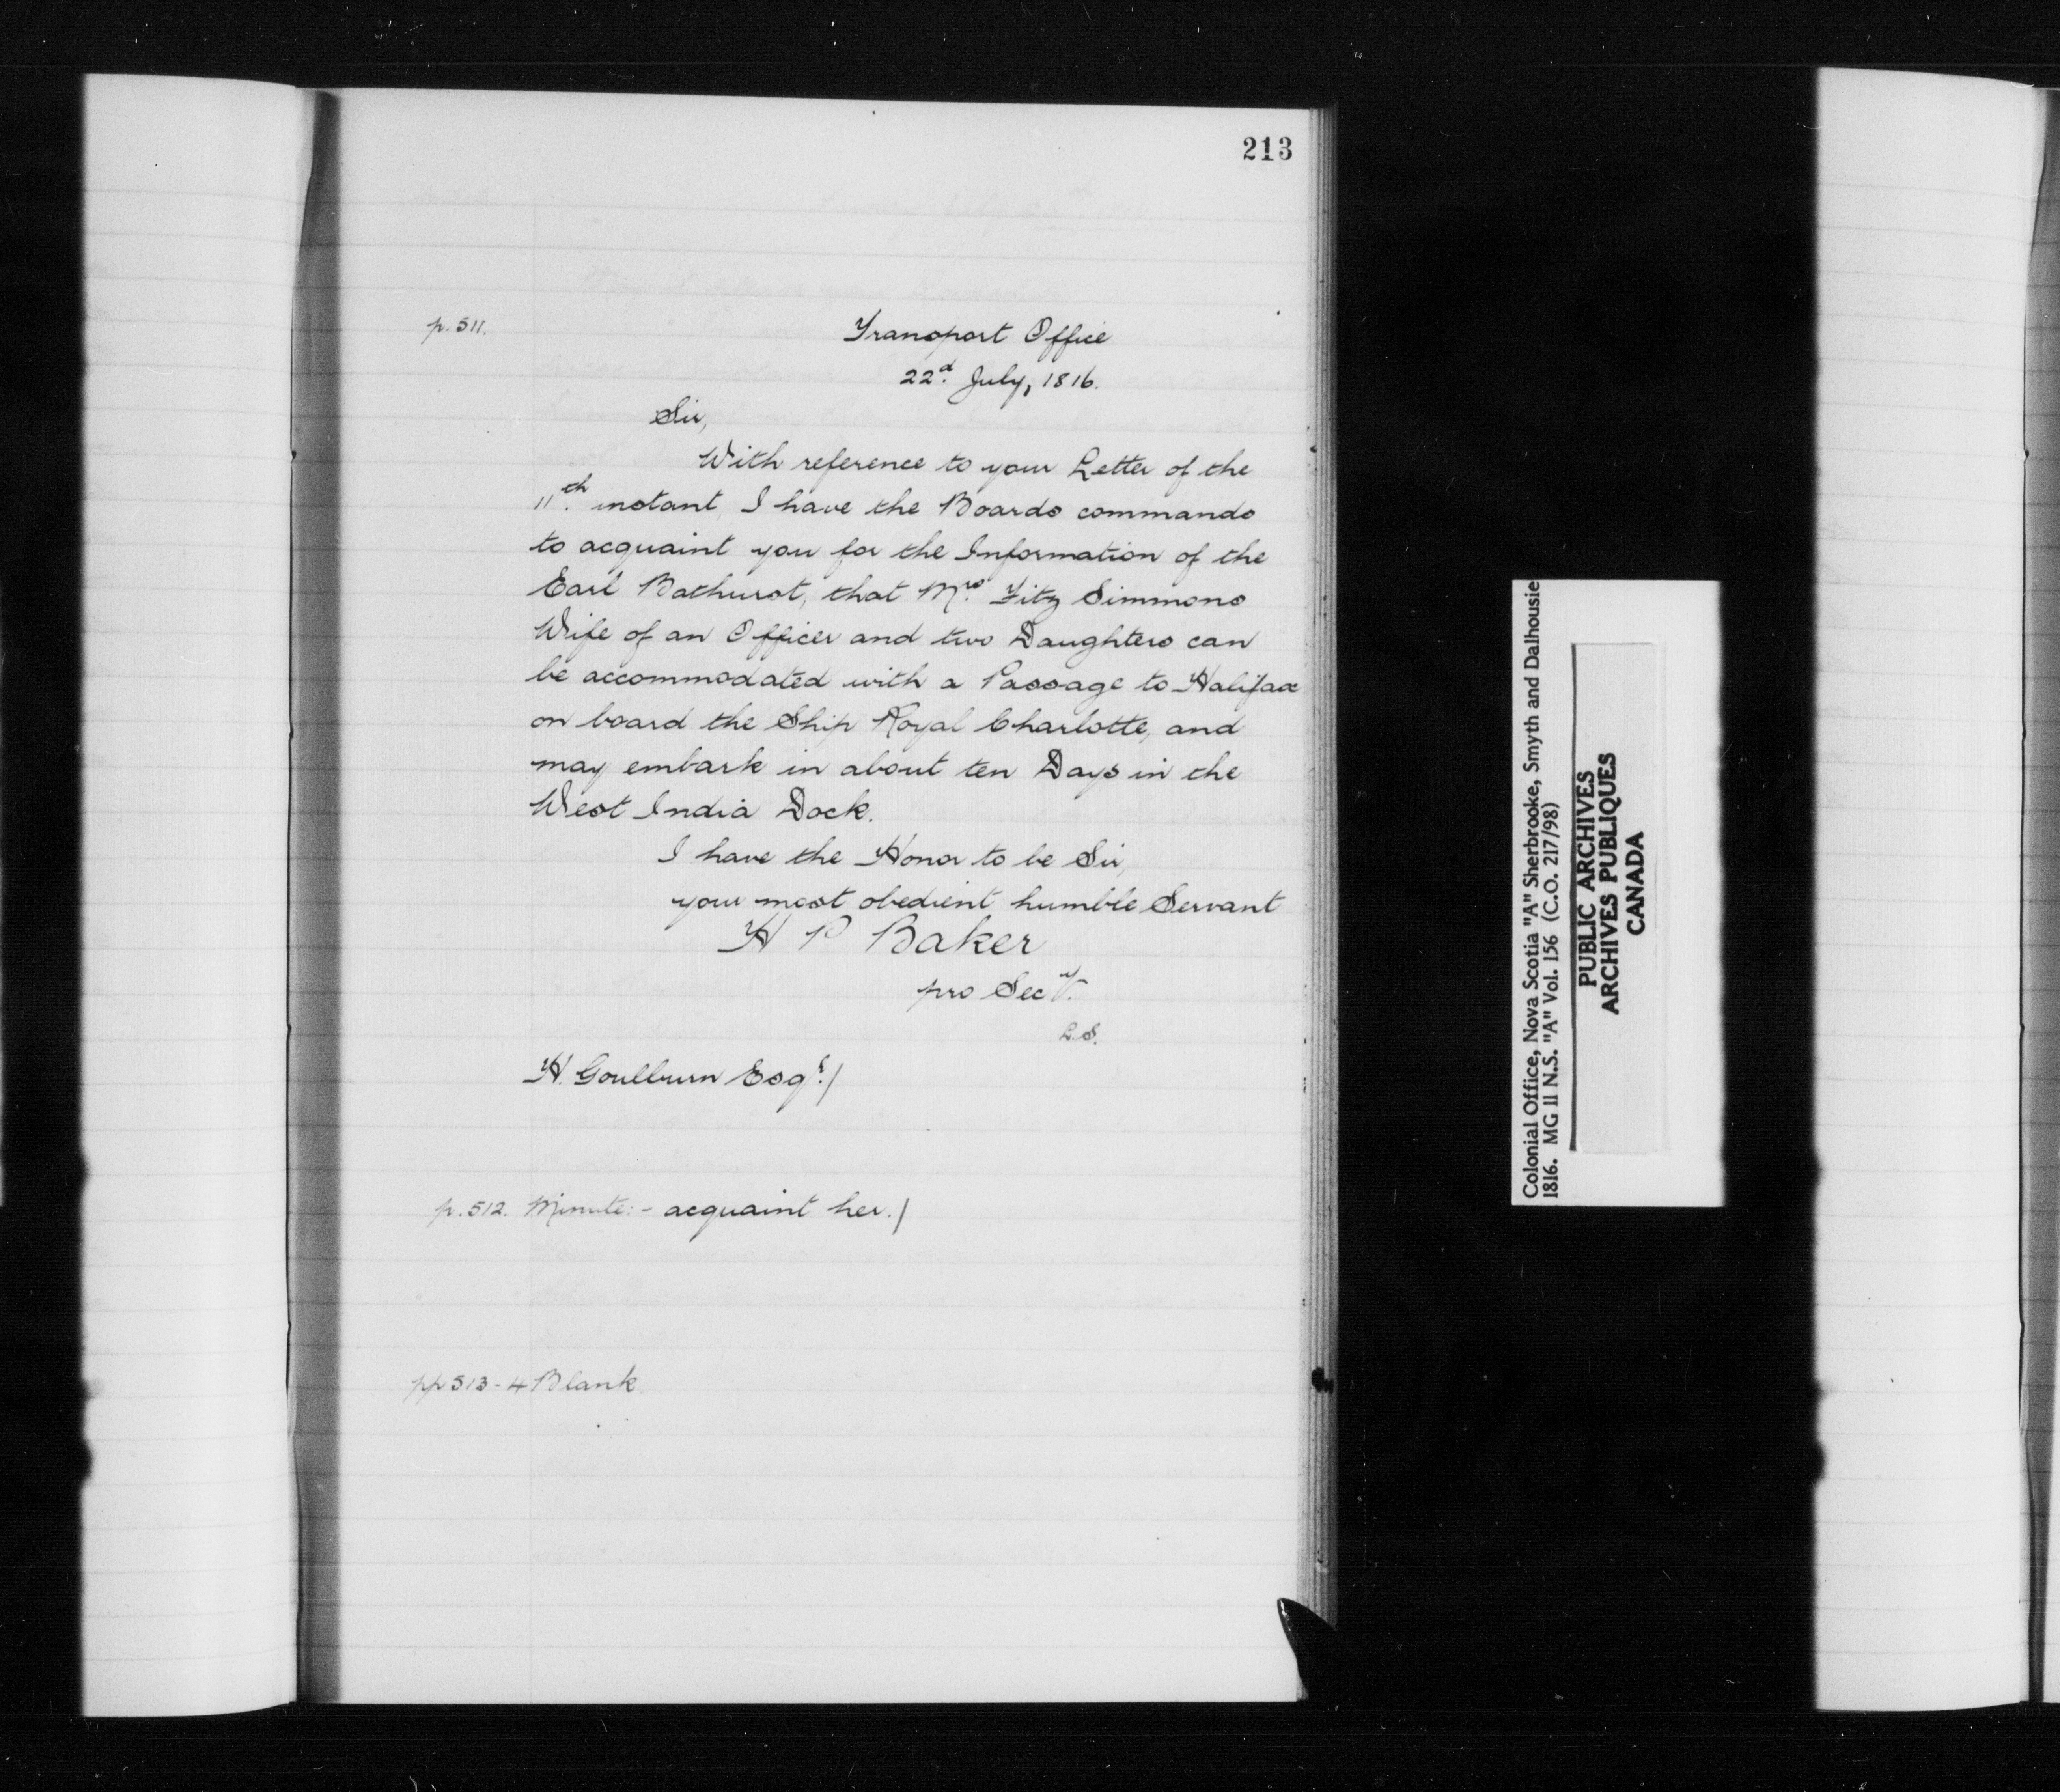 213
p. 511.
Transport Office
22d. July, 1816.
Sir,
With reference to your Letter of the
11th. instant, I have the Boards commands
to acquaint you for the Information of the
Earl Bathurst, that Mrs. Fitz Simmons
Wife of an Officer and two Daughters can
be accommodated with a Passage to Halifax
on board the Ship Royal Charlotte, and
may embark in about ten Days in the
West India Dock.
I have the Honor to be Sir,
your most obedient humble Servant
H P Baker
pro Secy.
L.S.
H. Goulburn Esqr./
p. 512. Minute:- acquaint her./
pp 513-4 Blank.
Colonial Office, Nova Scotia "A" Sherbrooke, Smyth and Dalhousie
1816. MG 11 N.S. "A" Vol. 156 (C.O. 217/98)
PUBLIC ARCHIVES
ARCHIVES PUBLIQUES
CANADA